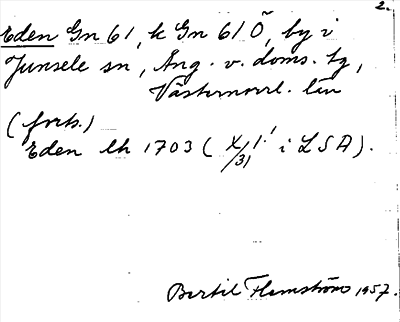 2.
Eden Gn 61, k Gn 61 Ö, by i
Junsele sn, Ång. v. doms. tg,
Västernorrl. län
(forts.)
Eden lh 1703 (X/31 1:1 i LSA).
Bertil Flemström 1957.